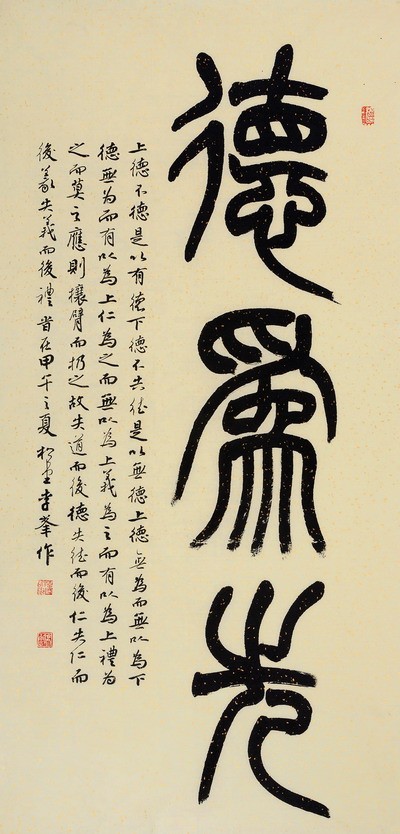 德爲先
上德不德是以有德下德不失德是以無德上德無為而無以為下
德無為而有以為上仁為之而無以為上義為之而有以為上禮為
之而莫之應則攘臂而扔之故失道而後德失德而後仁失仁而
後義失義而後禮旹在甲午之夏李峯作